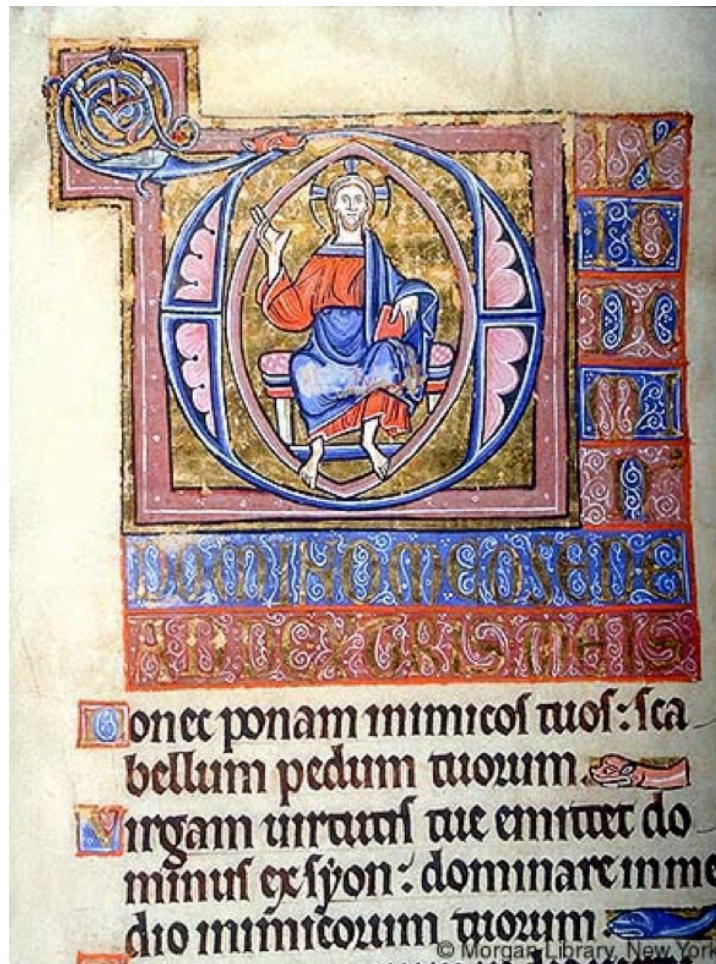 D
IX
IT
DO
MI
N
DOMINO MEO SEDE
DEXTRIS MEIS
Donec ponam inimicoſ tuoſ: ſca
bellum pedum tuorum.
Virgam uirtutiſ tue emittet do
minuſ ex ſyon: dominare in me
dio inimicorum tuorum.
© Morgan Library, New York